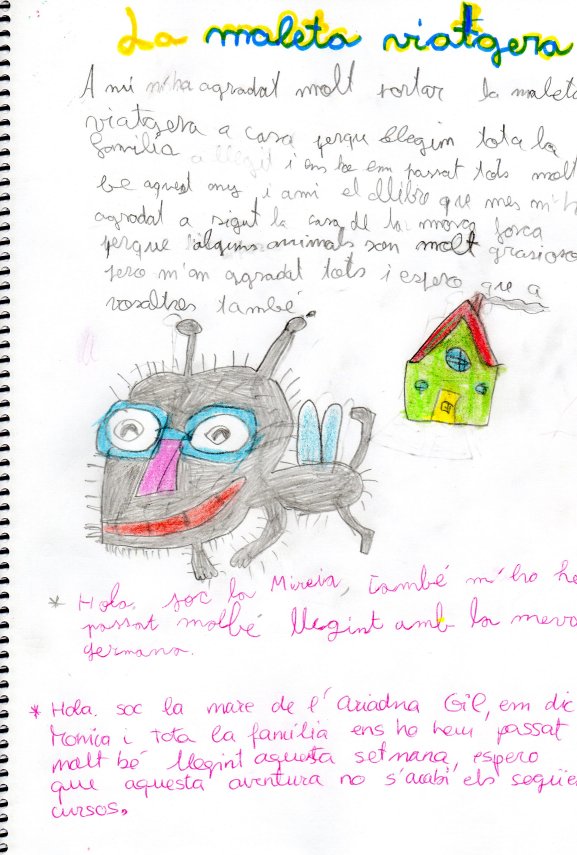 La maleta viatgera
A mi m'ha agradat molt portar la maleta
viatgera a casa perque llegim tota la
familia a llegit i ens ho em passat tots molt
be aquest any i ami el llibre que mes m'h
agradat a sigut la casa de la mosca fosca
perque alguns animals son molt grasioso
pero m'an agradat tots i espero que a
vosaltres també
* Hola. soc la Mireia, també m'ho he
passat molbé llegint amb la meva
germana.
* Hola. soc la mare de l'Ariadna Gil, em dic
Monica i tota la família ens ho hem passat
molt bé llegint aquesta setmana, espero
que aquesta aventura no s'acabi els següe
cursos.